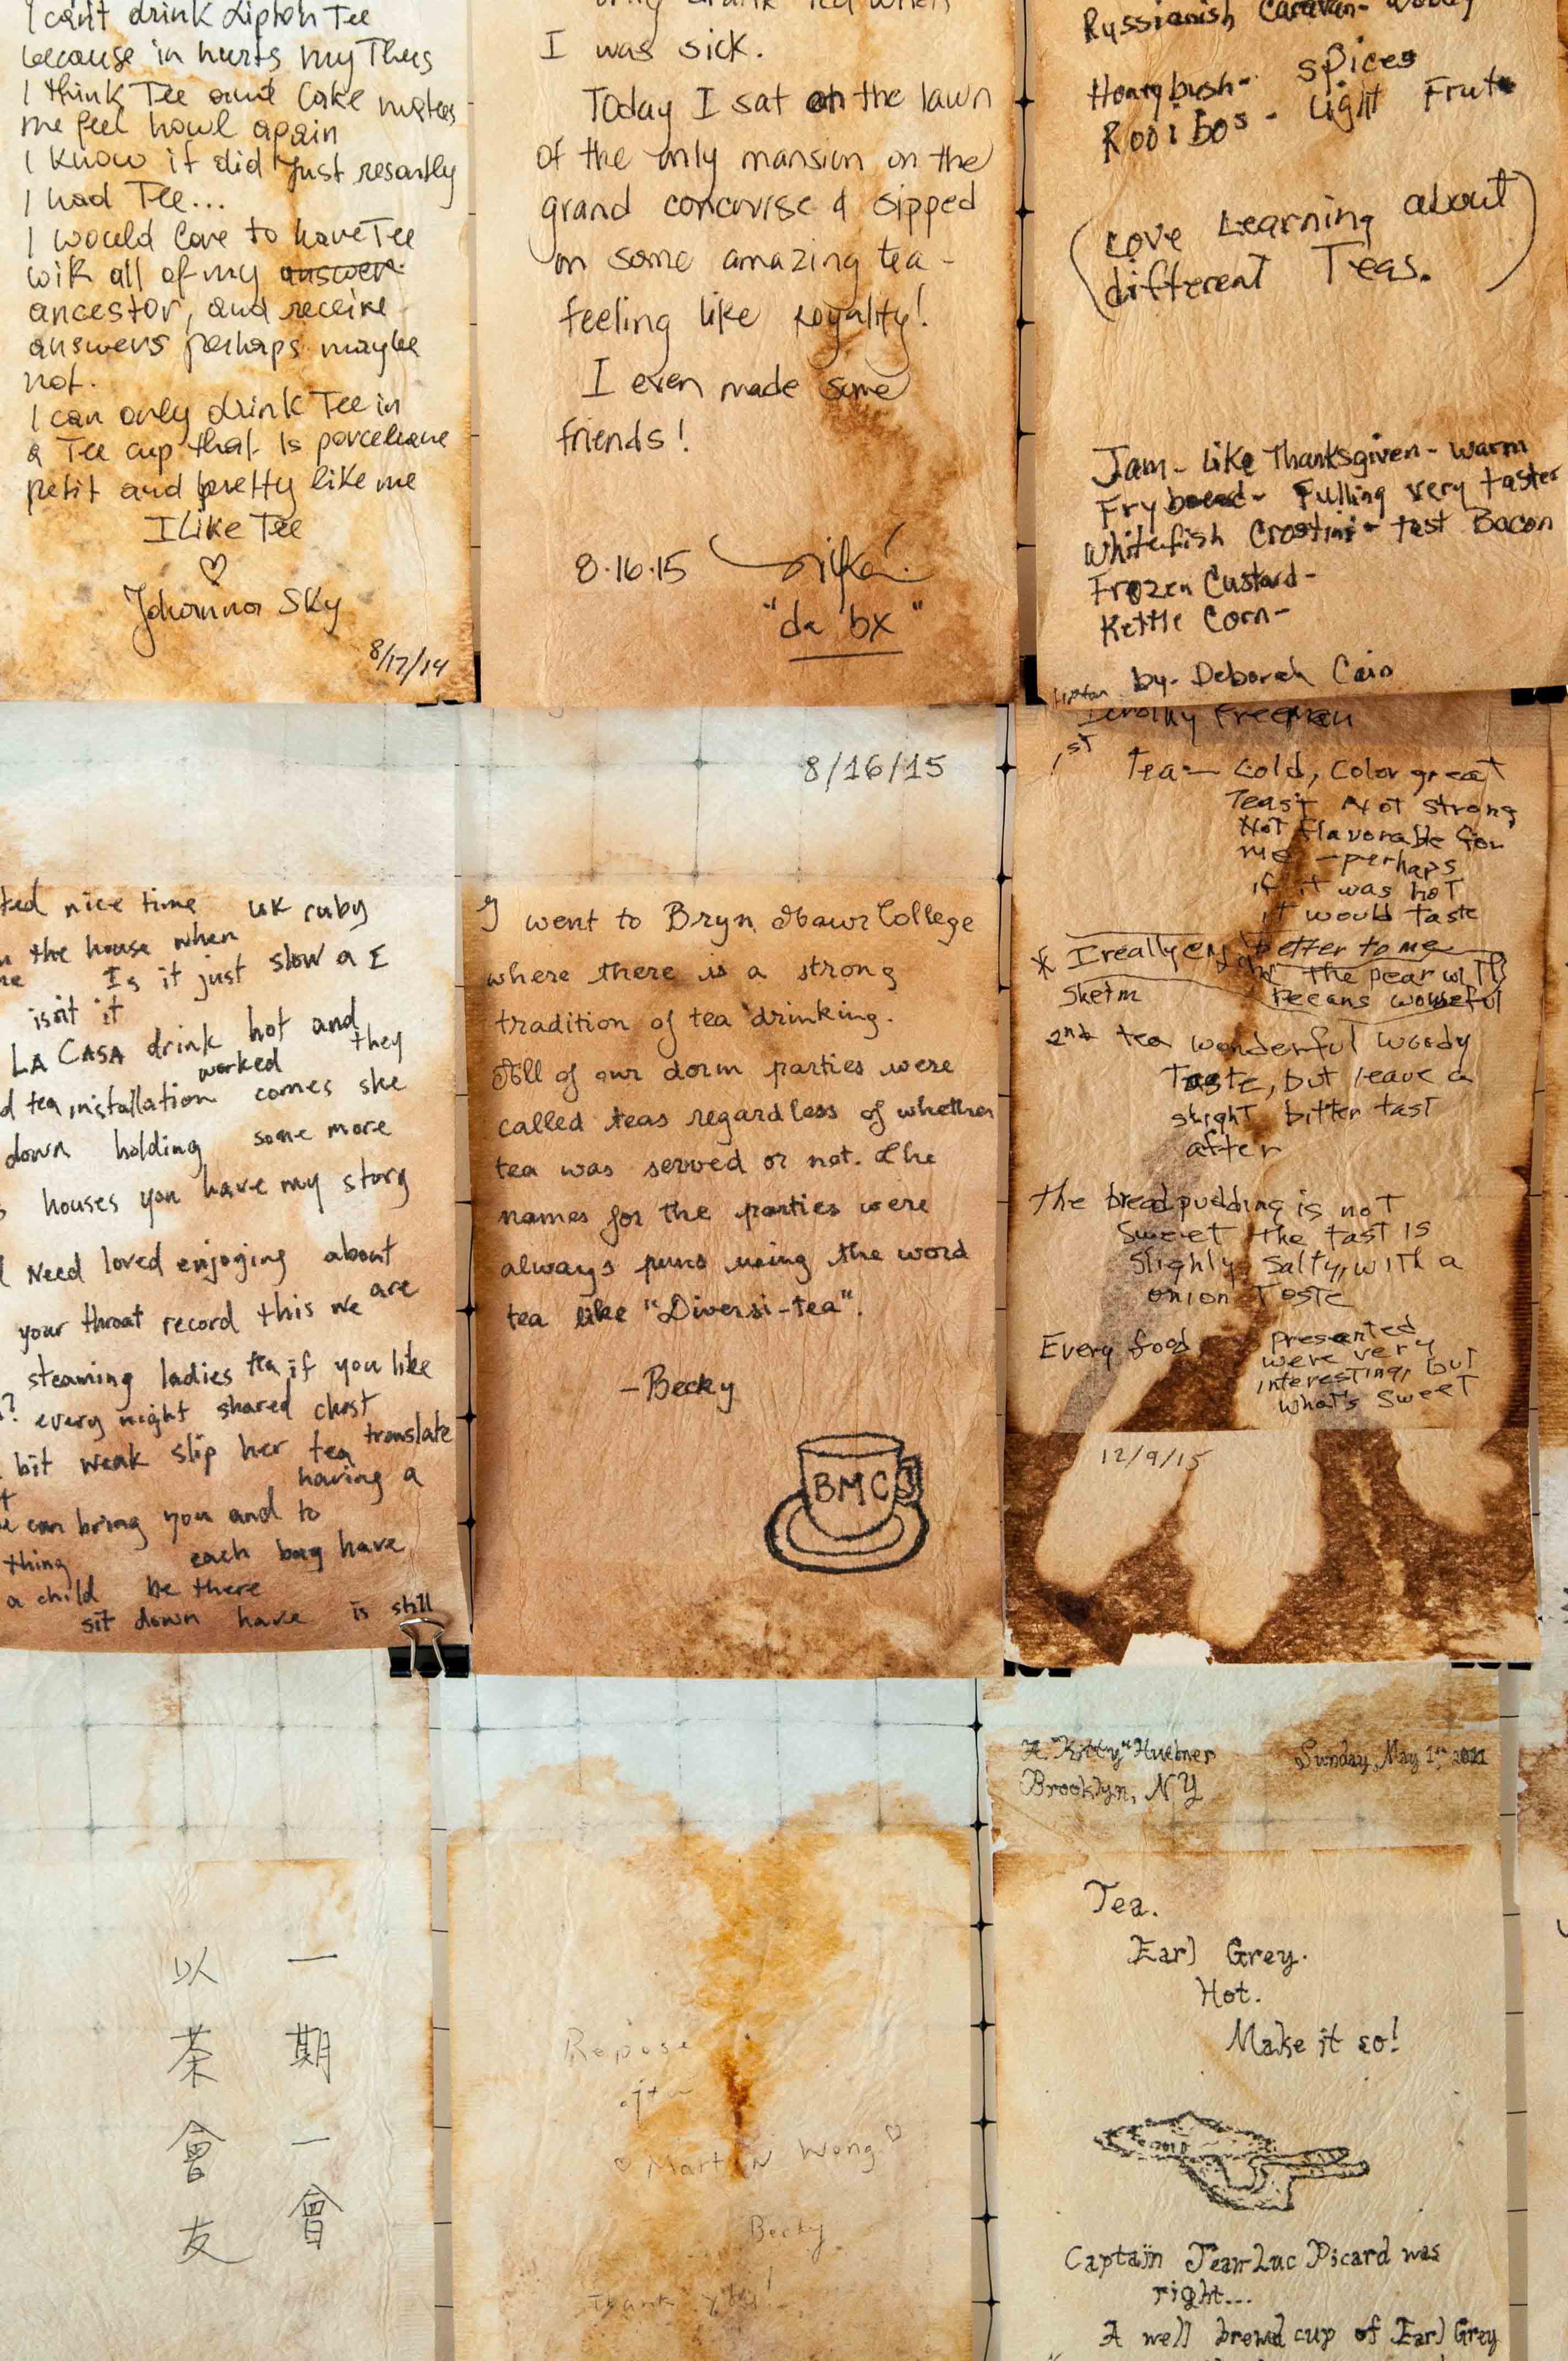 I can't drink Lipton Tee
because in hurts my Thus
I think Tee and Cake makes
me feel howl again
I know it did just resantly
I had Tee...
I would love to have Tee
with all of my answer
ancestor, and receive
answers perhaps maybe
not.
I can only drink Tee in
a Tee cup that is porcelane
petit and pretty like me
I Like Tee
Johanna Sky
8/17/14
I was sick.
Today I sat on the lawn
of the only mansion on the
grand concourse & sipped
on some amazing tea -
feeling like royality!
I even made some
friends!
8.16.15
"da bx"
Russianish Caravan- Wooky
Honeybush- spices
Rooibos - Light Frute
(Love Learning about
different Teas.)
Jam - Like Thanksgiven - warm
Frybread - Fulling very taster
Whitefish Crostini - tast Bacon
Frozen Custard -
Kettle Corn -
by- Deborah Cain
ted nice time UK ruby
the house when
Is it just slow a I
isn't it
LA CASA drink hot and
worked they
d tea, installation comes she
down holding some more
houses you have my story
Need loved enjoging about
your throat record this we are
steaming ladies tea, if you like
? every night shared chest
bit weak slip her tea translate
having a
can bring you and to
thing each bag have
a child be there
sit down have is still
8/16/15
I went to Bryn Mawr College
where there is a strong
tradition of tea drinking.
All of our dorm parties were
called teas regardless of whether
tea was served or not. The
names for the parties were
always puns using the word
tea like "Diversi-tea".
-Becky
BMC
Dorothy Freeman
1st
Tea - Cold, Color great
Teast Not strong
Not Flavorable for
me - perhaps
if it was hoT
it would taste
better to me
* I really enjoy
the pear with
Pecans wouseful
2nd tea wonderful woody
Taste, but leave a
slight bitter tast
after
The bread pudding is noT
Sweet the tast is
Slighly Salty, with a
onion Toste
Every food presented
were very
interesting, but
what's Sweet
12/9/15
一期一會
以茶會友
Repose
Martin Wong
Becky
Thank you!
A. "Kitty" Huebner
Brooklyn, NY
Sunday, May 1st, 2011
Tea.
Earl Grey.
Hot.
Make it so!
Captain Jean-Luc Picard was
right...
A well brewed cup of Earl Grey